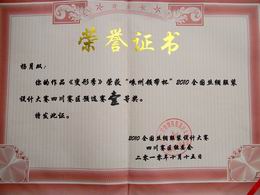 荣誉证书
杨月双:
你的作品《变形季》荣获“嵊州领带杯”2010全国丝绸服装
设计大赛四川赛区预选赛壹等奖。
特发此证。
2010全国丝绸服装设计大赛
四川赛区组委会
二零一零年十月十五日